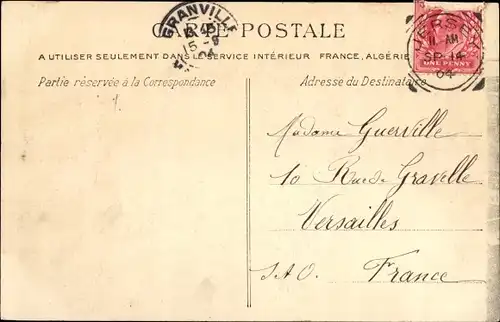 CARTE POSTALE
A UTILISER SEULEMENT DANS LE SERVICE INTÉRIEUR FRANCE, ALGÉRIE
Partie réservée à la Correspondance
Adresse du Destinataire
GRANVILLE
15 -9
04
JERSEY
11 AM
SP 14
04
ONE PENNY
Madame Guerville
10 Rue de Gravelle
Versailles
S & O. France